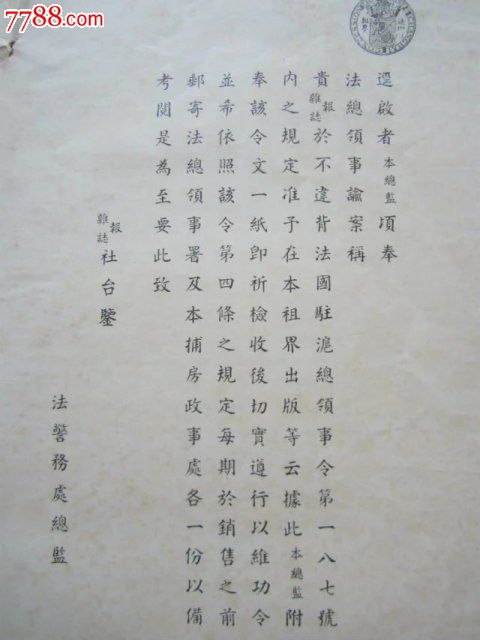 7788.com
逕啟者本總監頃奉
法總領事諭案稱
貴報雜誌於不違背法國駐滬總領事令第一八七號
內之規定准予在本租界出版等云據此本總監附
奉該令文一紙卽祈檢收後切實遵行以維功令
並希依照該令第四條之規定每期於銷售之前
郵寄法總領事署及本捕房政事處各一份以備
考閱是為至要此致
報雜誌社台鑒
法警務處總監